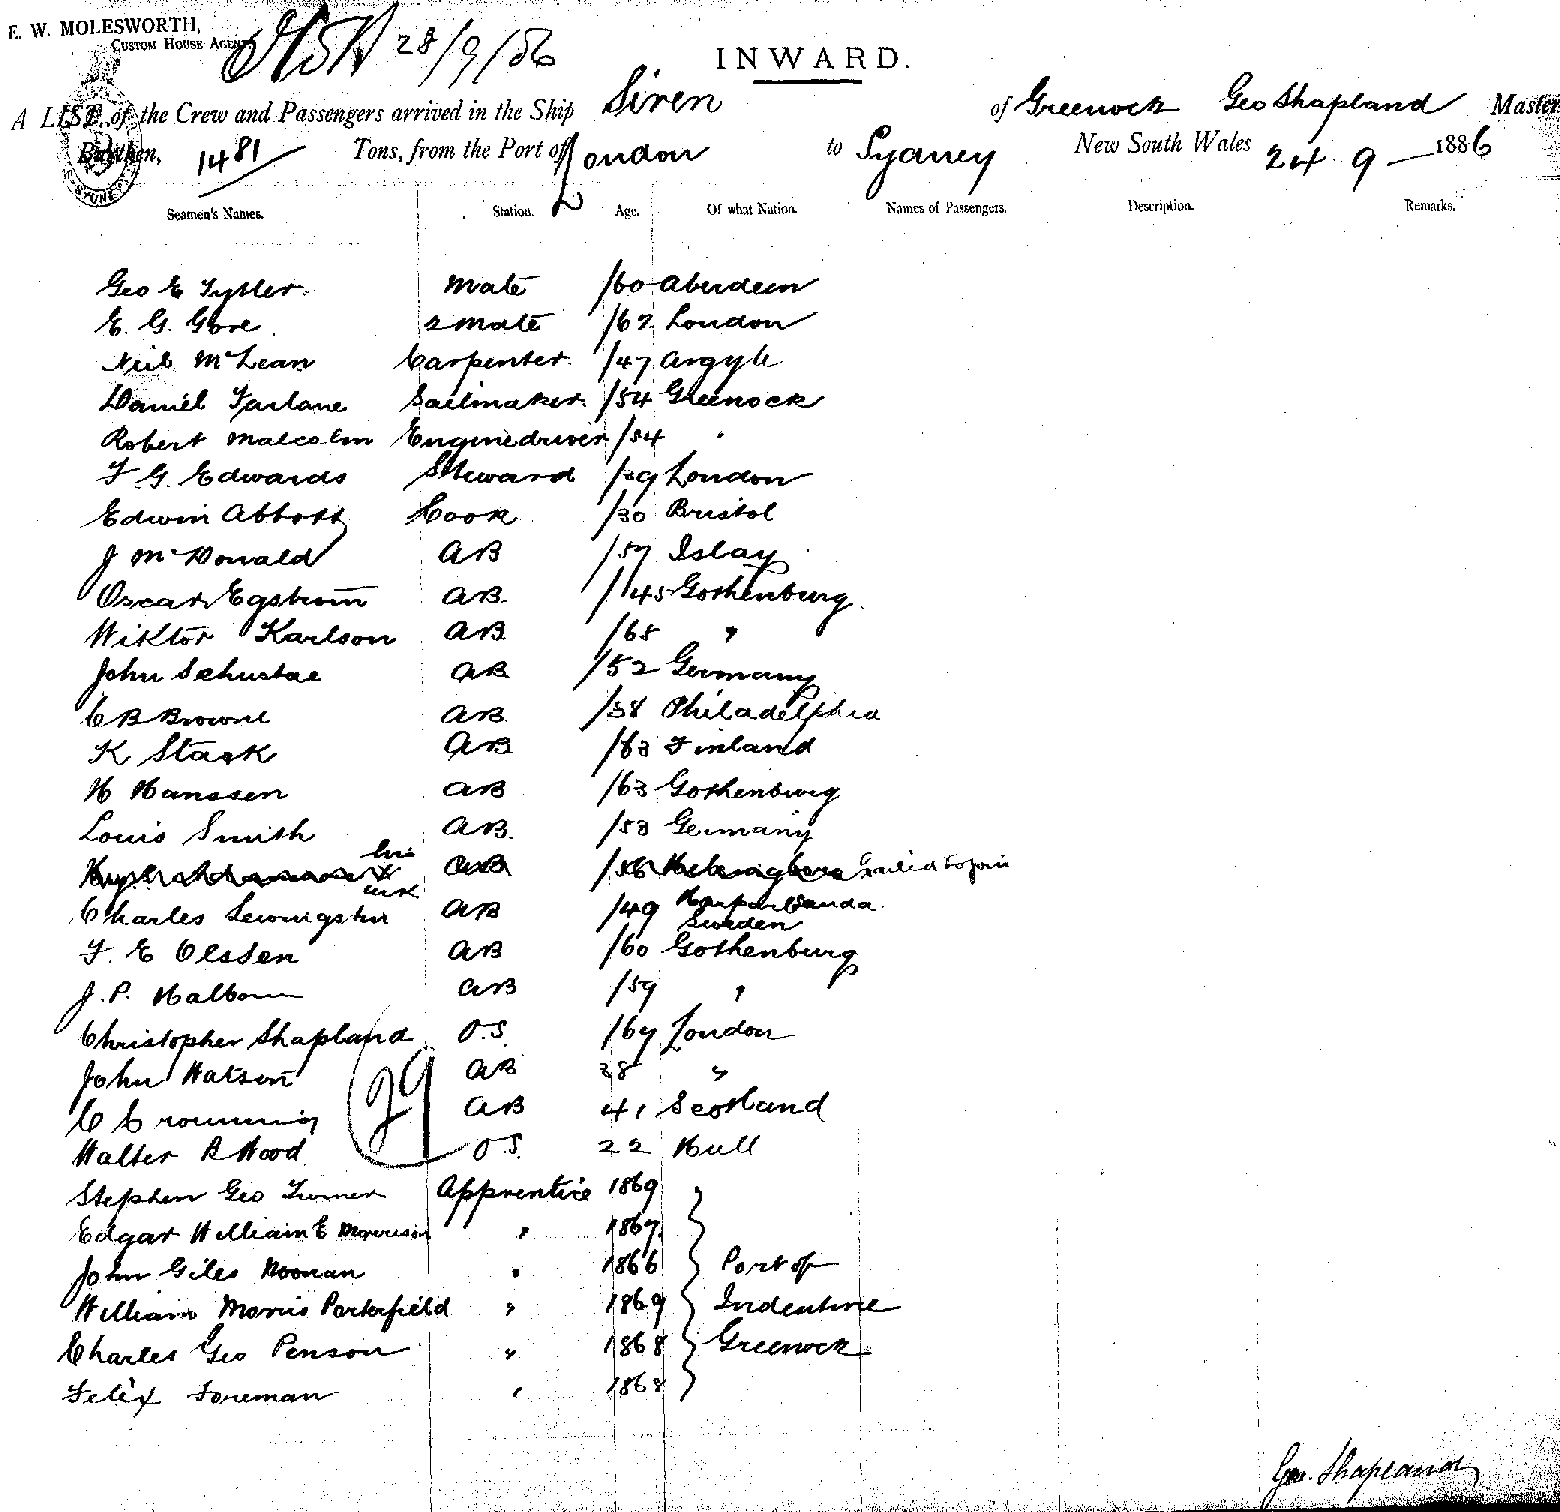 E. W. MOLESWORTH,
CUSTOM HOUSE AGENT
28/9/86
INWARD.
A LIST of the Crew and Passengers arrived in the Ship Siren of Greenock Geo Shapland Master
Burthen, 1481 Tons, from the Port of London to Sydney New South Wales 24 . 9 — 1886
Seamen's Names. Station. Age. Of what Nation. Names of Passengers. Description. Remarks.
Geo E Tytler Mate /60 Aberdeen
E. G. Gore 2 Mate /62 London
Neil McLean Carpenter /47 Argyle
Daniel Farlane Sailmaker /54 Greenock
Robert Malcolm Enginedriver /54 "
F G Edwards Steward /39 London
Edwin Abbott Cook /30 Bristol
J McDonald AB /57 Islay
Oscar Egstrom AB /45 Gothenburg
Wiktor Karlson AB /65 "
John Schustae AB /52 Germany
C B Browne AB /38 Philadelphia
K Stark AB /63 Finland
H Hanssen AB /63 Gothenburg
Louis Smith AB /53 Germany
his X mark AB /56 failed to join
Charles AB /49 Sweden
F. E Olssen AB /60 Gothenburg
J. P. AB /59 "
Christopher Shapland O.S. /69 London
John Watson AB 28 "
C AB 41 Scotland
29
Walter R Wood O.S. 22 Hull
Stephen Geo Turner Apprentice 1869
Edgar William E Morrison " 1867
John Giles Noonan " 1866 Port of
William Morris Porterfield " 1869 Indenture
Charles Geo Penson " 1868 Greenock
Felix Foreman " 1868
Geo. Shapland